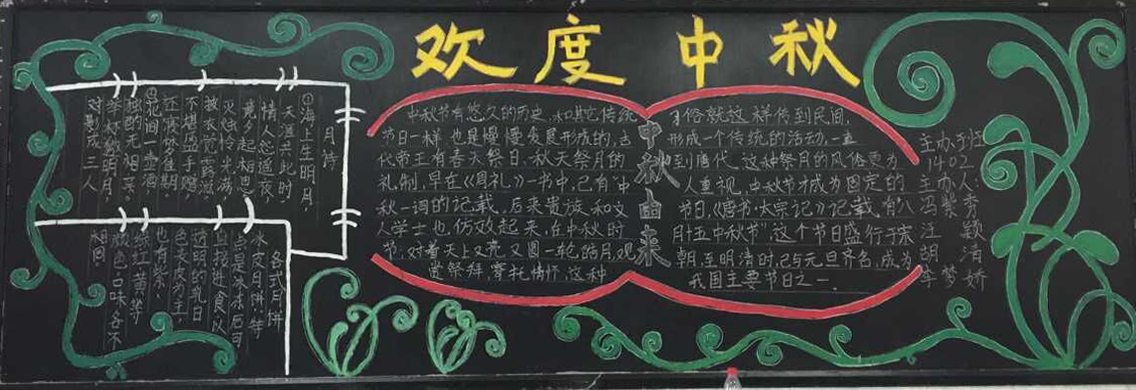 欢度中秋
月诗
①海上生明月
天涯共此时
情人怨遥夜
竟夕起相思
灭烛怜光满
披衣觉露滋
不堪盈手赠
还寝梦佳期
②花间一壶酒
独酌无相亲
举杯邀明月
对影成三人
各式月饼
冰皮月饼:特
点是冰冻后可
直接进食以
透明的乳白
色表皮为主
也有紫、
绿、红、黄等
颜色口味各不
相同
中秋由来
中秋节有悠久的历史,和其它传统
节日一样,也是慢慢发展形成的,古
代帝王有春天祭日、秋天祭月的
礼制,早在《周礼》一书中,已有“中
秋一词的记载。后来贵族和文
人学士也仿效起来,在中秋时
节,对着天上又亮又圆一轮皓月,观
赏祭拜,寄托情怀,这种
习俗就这样传到民间,
形成一个传统的活动,一直
到唐代,这种祭月的风俗更为
人重视,中秋节才成为固定的
节日,《唐书·太宗记》记载有“八
月十五中秋节”,这个节日盛行于宋
朝,至明清时,已与元旦齐名,成为
我国主要节日之一。
主办班
1402
主办人:
冯紫秀
汪颖
胡清
李梦娇